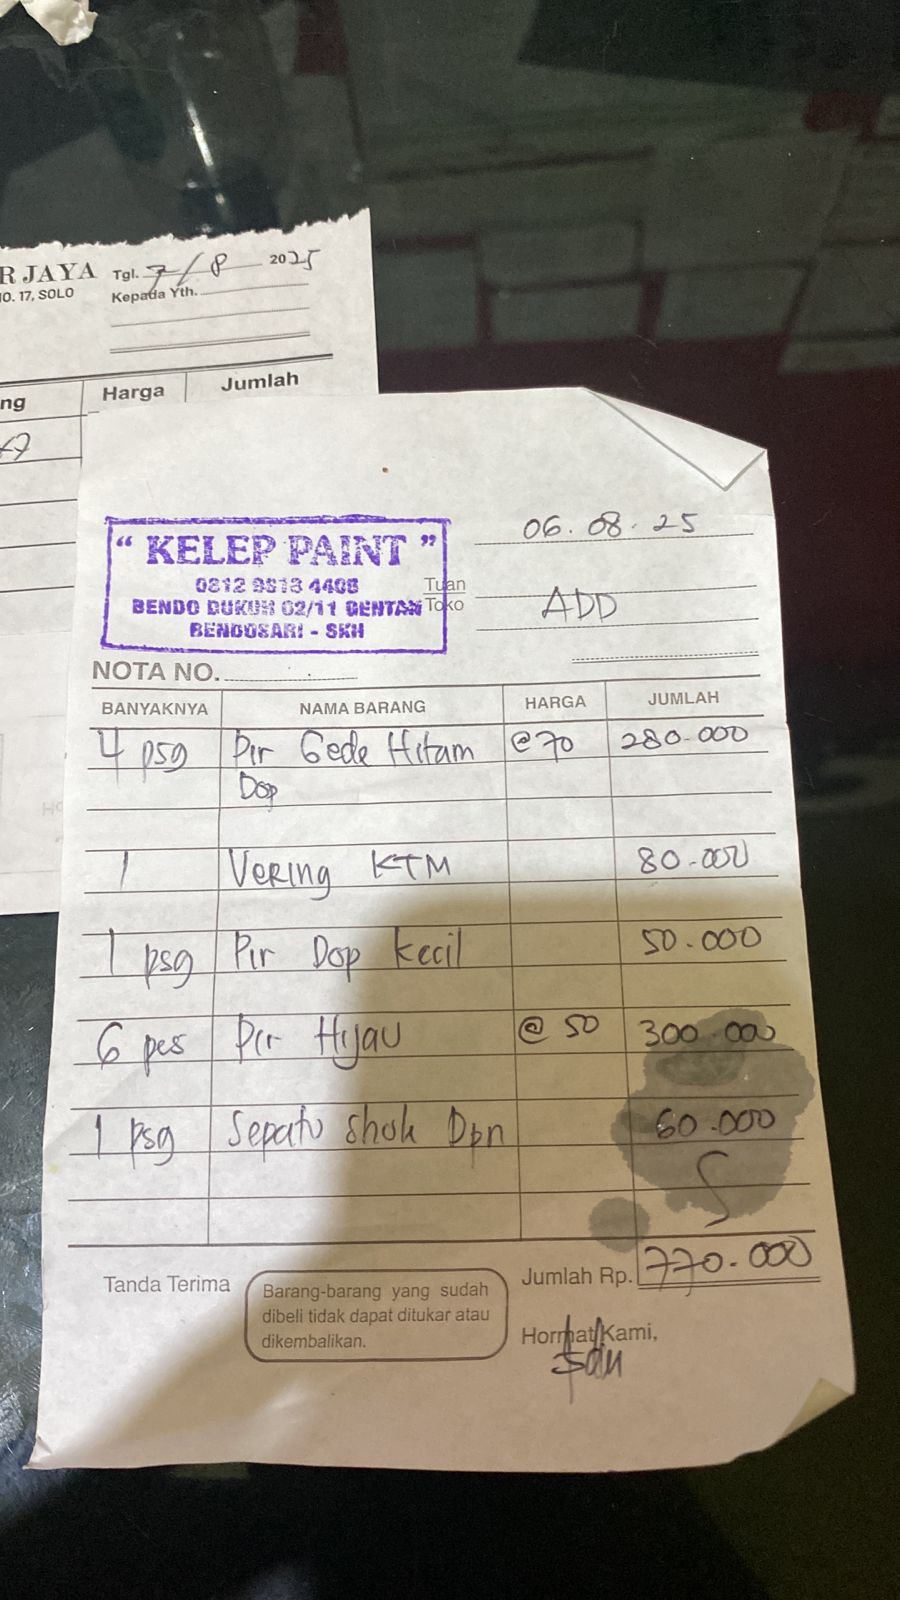 R JAYA
NO. 17, SOLO
Tgl. 7/8 2025
Kepada Yth.
ng Harga Jumlah
" KELEP PAINT "
0812 9813 4408
BENDO DUKUH 02/11 GENTAN
BENDOSARI - SKH
06.08.25
Tuan
Toko
ADD
NOTA NO.
BANYAKNYA NAMA BARANG HARGA JUMLAH
4 psg Pir Gede Hitam @70 280.000
Dop
1 Vering KTM 80.000
1 psg Pir Dop Kecil 50.000
6 pcs Pir Hijau @ 50 300.000
1 psg Sepatu Shok Dpn 60.000
Tanda Terima
Barang-barang yang sudah
dibeli tidak dapat ditukar atau
dikembalikan.
Jumlah Rp. 770.000
Hormat Kami,